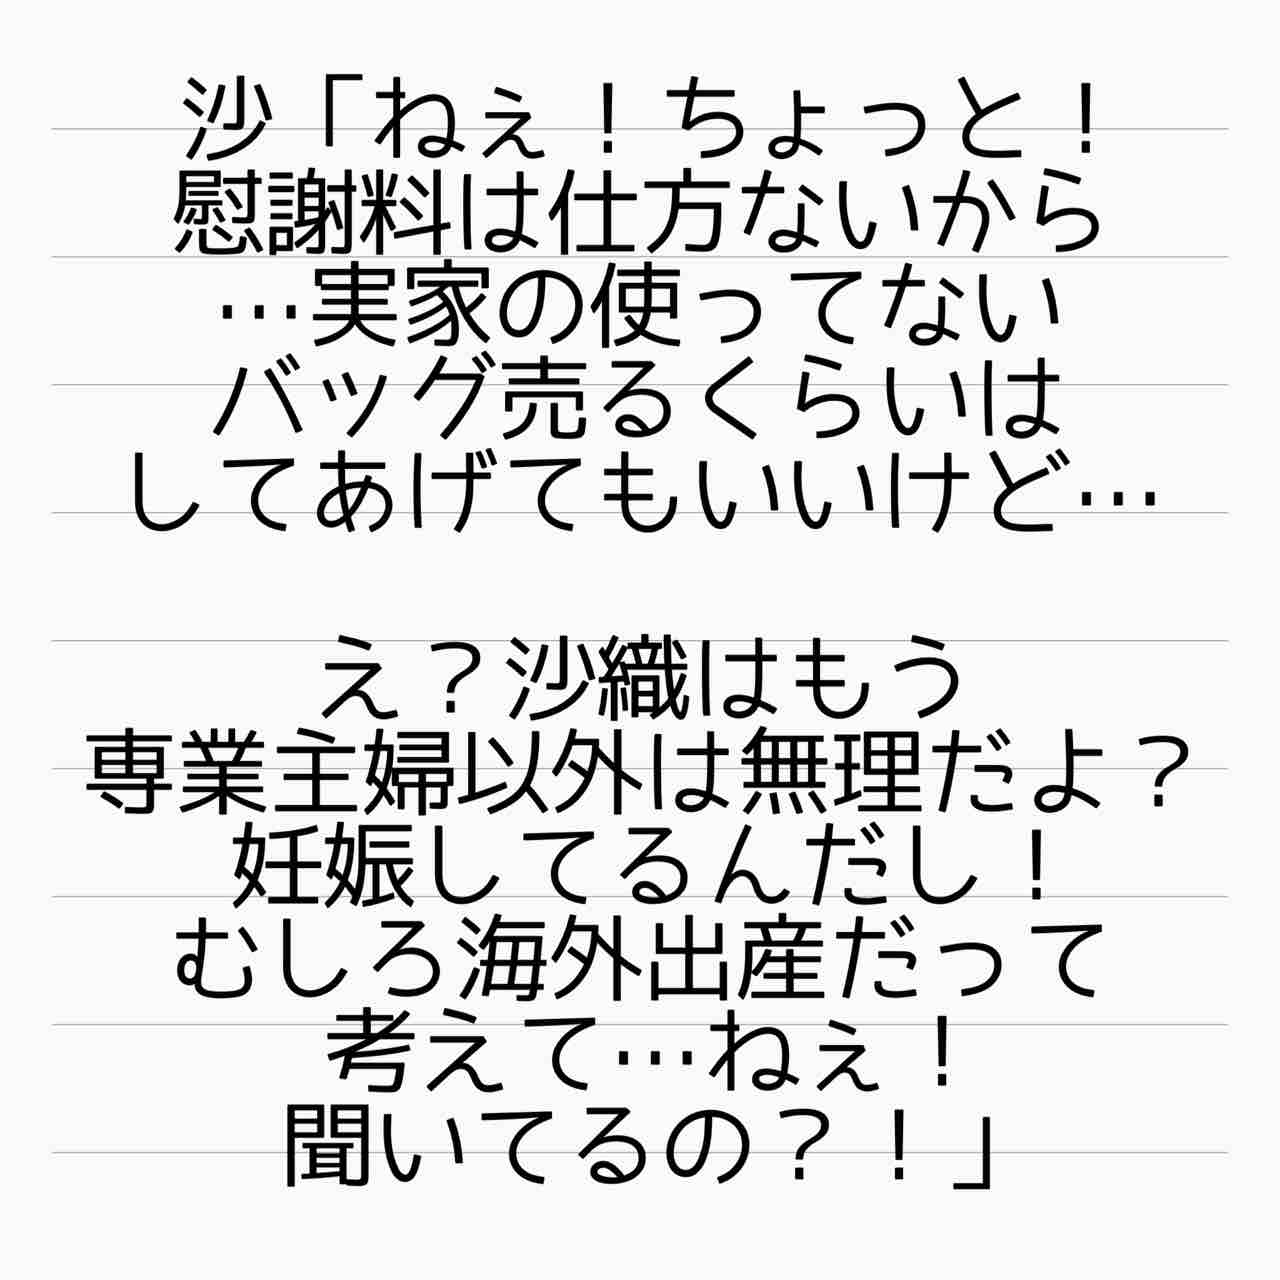 沙「ねぇ！ちょっと！
慰謝料は仕方ないから
…実家の使ってない
バッグ売るくらいは
してあげてもいいけど…
え？沙織はもう
専業主婦以外は無理だよ？
妊娠してるんだし！
むしろ海外出産だって
考えて…ねぇ！
聞いてるの？！」